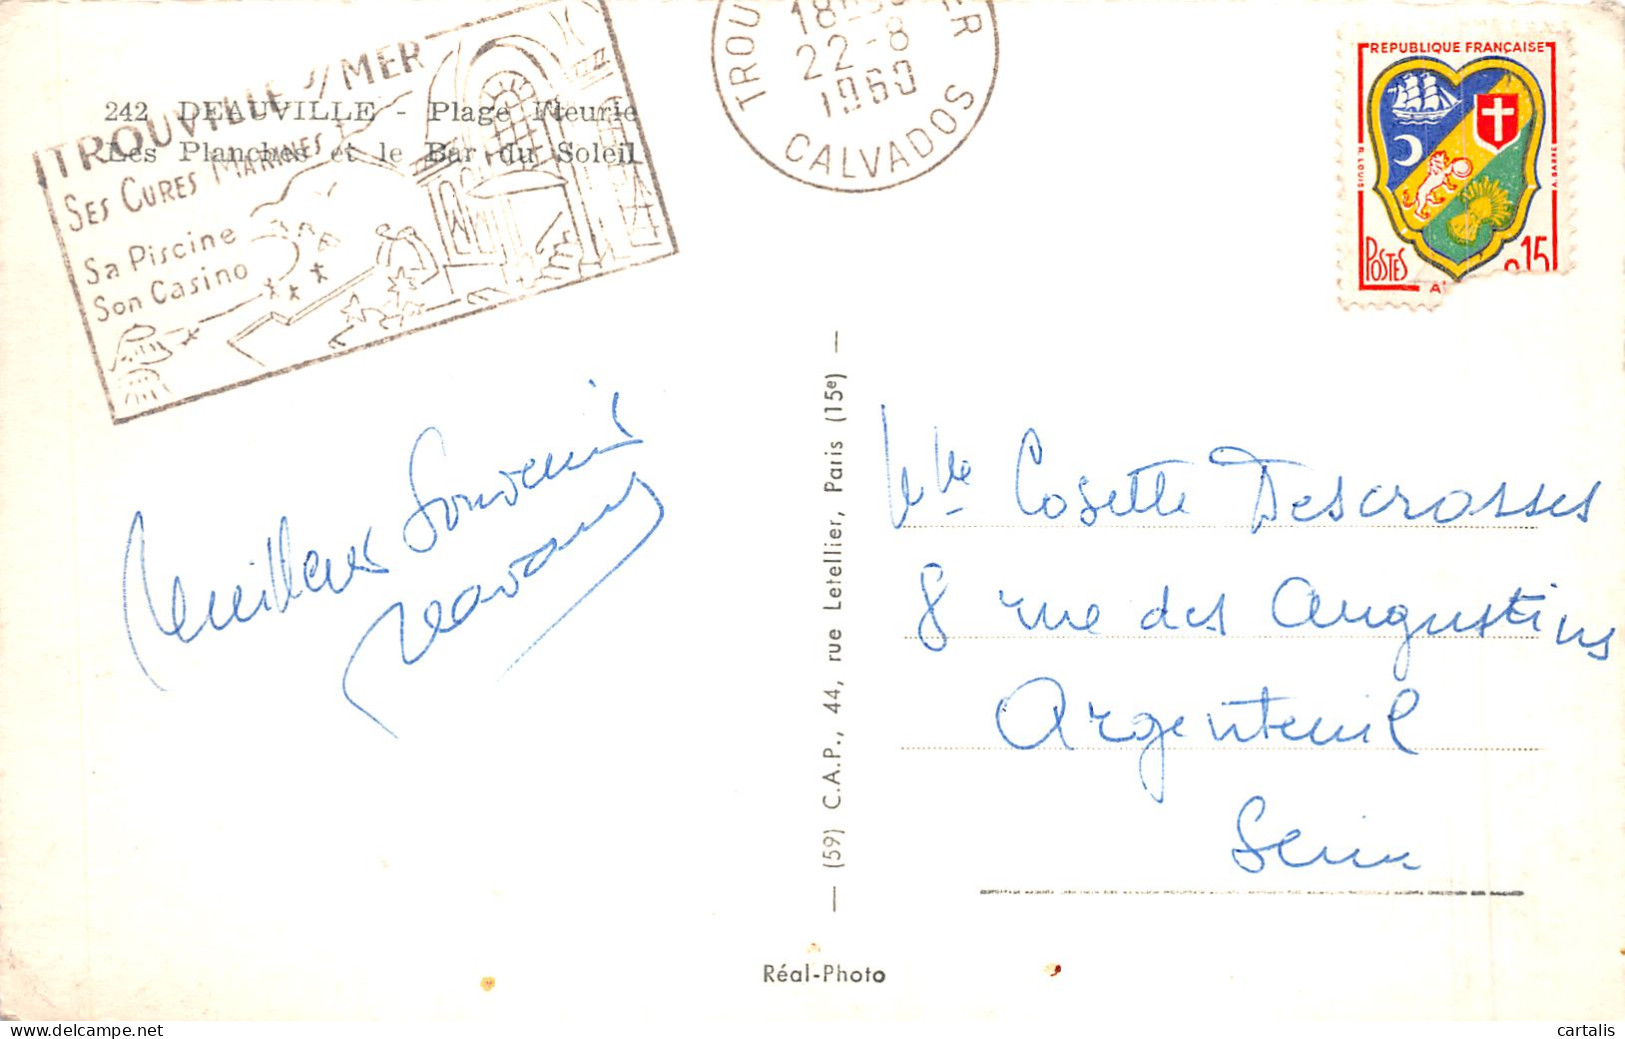 242 DEAUVILLE - Plage Fleurie
Les Planches et le Bar du Soleil
TROUVILLE S/MER
SES CURES MARINES
Sa Piscine
Son Casino
18
22-8
1960
CALVADOS
REPUBLIQUE FRANÇAISE
R. LOUIS
A. BARRE
POSTES
0,15
Meilleurs Souvenirs
Mlle Cosette Descrosses
8 rue des Augustins
Argenteuil
Seine
(59) C.A.P., 44, rue Letellier, Paris (15e)
Réal-Photo
cartalis